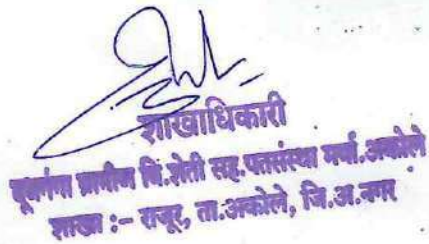 शाखाधिकारी
ग्रामीण बि.शेती सह.पतसंस्था मर्या.अकोले
शाखा :- राजूर, ता.अकोले, जि.अ.नगर